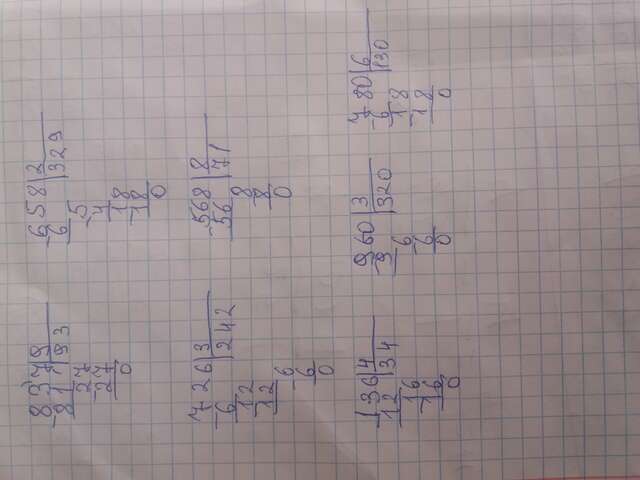 -837|9
81|93
-27
27
0
-658|2
6|329
-5
4
-18
18
0
-726|3
6|242
-12
12
-6
6
0
-568|8
56|71
-8
8
0
-136|4
12|34
-16
16
0
-960|3
9|320
-6
6
0
-780|6
6|130
-18
18
0